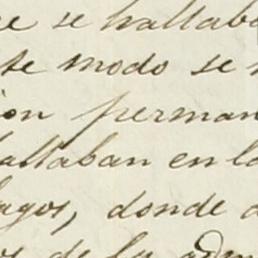 e se hallaba
ste modo se
ion perman
allaban en l
agos, donde
os de la adm